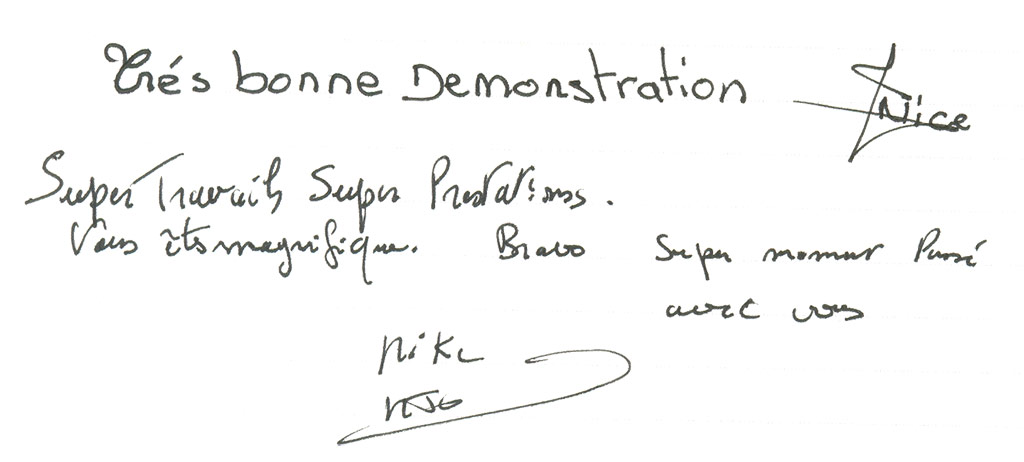 Trés bonne Demonstration
Nice
Super Travails Super Prestations.
Vous êtes magnifique. Bravo Super moment Passé
avec vous
Mike